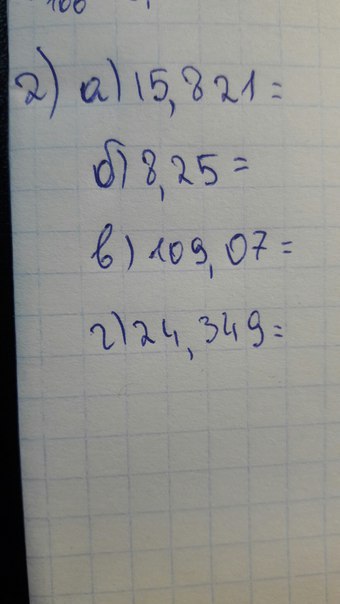 100
2) а) 15,821=
б) 8,25=
в) 109,07=
г) 24,349=